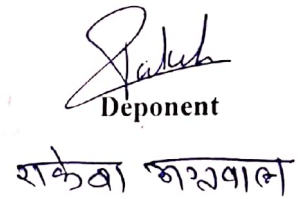 Rakesh
Deponent
राकेश अग्रवाल